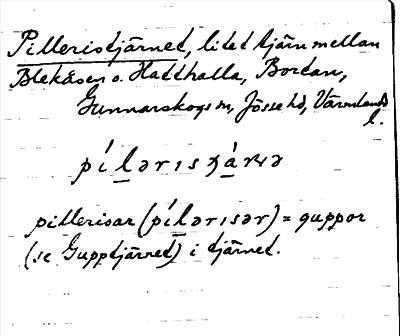 Pilleristjärnet, litet tjärn mellan
Blekåsen o. Hatthalla, Bortan,
Gunnarskogs sn, Jösse hd, Värmlands
l.
pílərısʒárnə
pillerisar (pílərısər) = guppor
(se Gupptjärnet) i tjärnet.